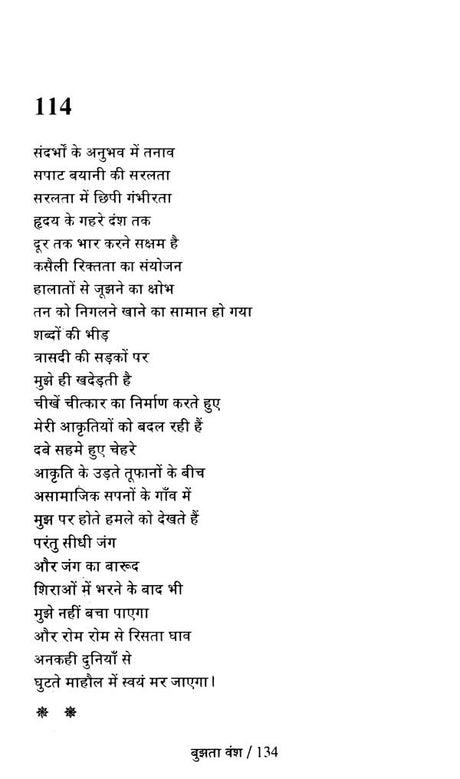 114
संदर्भों के अनुभव में तनाव
सपाट बयानी की सरलता
सरलता में छिपी गंभीरता
हृदय के गहरे दंश तक
दूर तक भार करने सक्षम है
कसैली रिक्तता का संयोजन
हालातों से जूझने का क्षोभ
तन को निगलने खाने का सामान हो गया
शब्दों की भीड़
त्रासदी की सड़कों पर
मुझे ही खदेड़ती है
चीखें चीत्कार का निर्माण करते हुए
मेरी आकृतियों को बदल रही हैं
दबे सहमे हुए चेहरे
आकृति के उड़ते तूफानों के बीच
असामाजिक सपनों के गाँव में
मुझ पर होते हमले को देखते हैं
परंतु सीधी जंग
और जंग का बारूद
शिराओं में भरने के बाद भी
मुझे नहीं बचा पाएगा
और रोम रोम से रिसता घाव
अनकही दुनियाँ से
घुटते माहौल में स्वयं मर जाएगा।
❋ ❋
बुझता वंश / 134